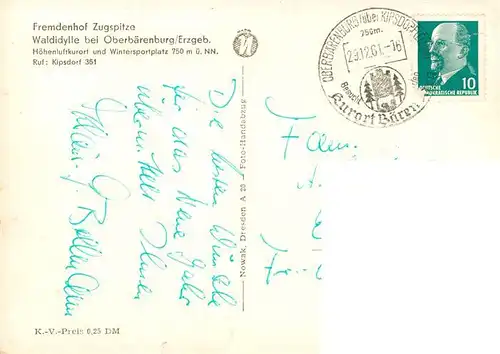 Fremdenhof Zugspitze
Waldidylle bei Oberbärenburg/Erzgeb.
Höhenluftkurort und Wintersportplatz 750 m ü. NN.
Ruf: Kipsdorf 351
Die besten Wünsche
für das Neue Jahr
übermittelt Ihnen
K.-V.-Preis 0,25 DM
Nowak, Dresden A 20 — Foto-Handabzug
OBERBÄRENBURG über KIPSDORF
750m.
29.12.61.-16
Kurort Bären
10
DEUTSCHE
DEMOKRATISCHE REPUBLIK
Fam.